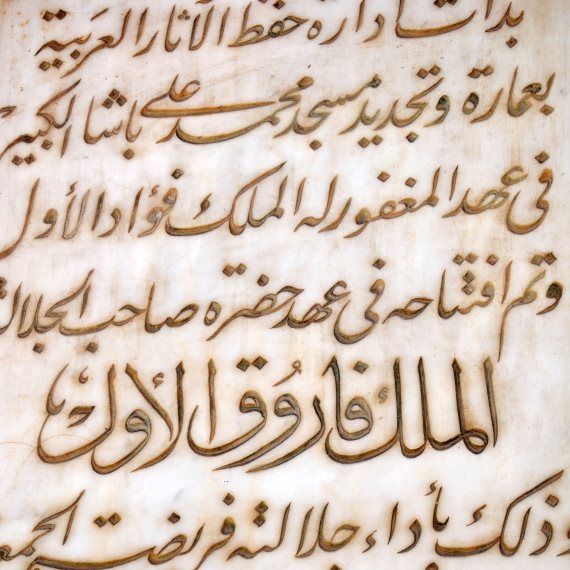 بدأت ادارة حفظ الآثار العربية
بعمارة وتجديد مسجد محمد على باشا الكبير
فى عهد المغفور له الملك فؤاد الأول
وتم افتتاحه فى عهد حضرة صاحب الجلالة
الملك فاروق الأول
وذلك بأداء جلالته فريضة الجمعة